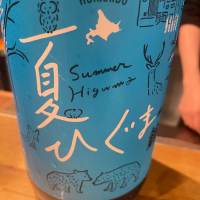 HOKKAIDO
夏
ひぐま
Summer
Higuma